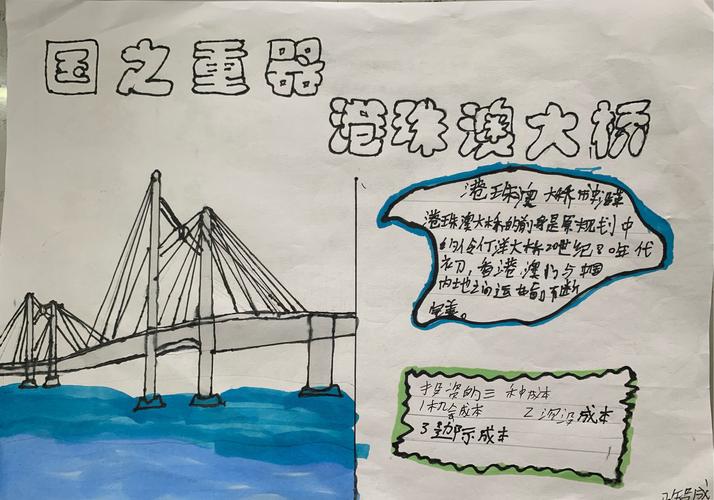 国之重器
港珠澳大桥
港珠澳大桥的沿革
港珠澳大桥的前身是原规划中
的伶仃洋大桥20世纪80年代
初,香港,澳门与中国
内地之间运输不断
完善。
投资的三种成本
1机会成本 2沉没成本
3边际成本